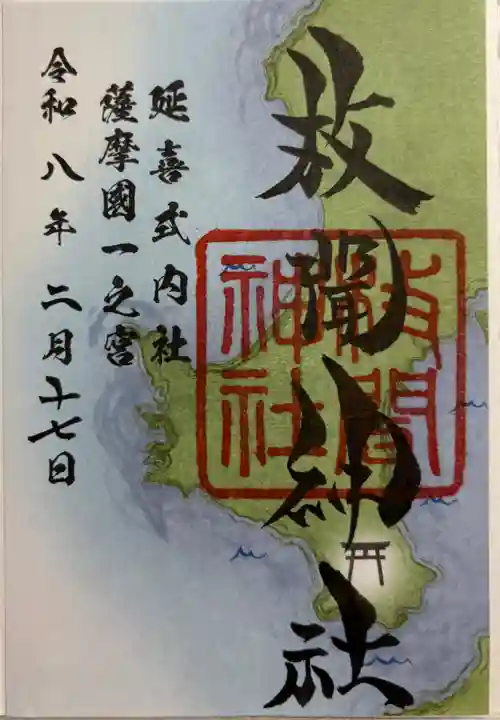 枚聞神社
枚聞
神社
延喜式内社
薩摩國一之宮
令和八年二月十七日